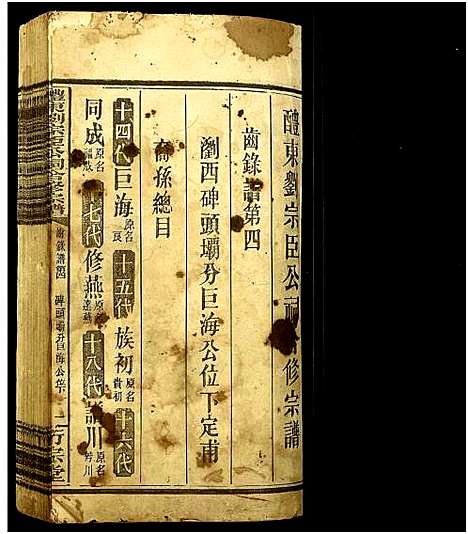 醴東劉宗臣公祠合修宗譜
齒錄譜第四
瀏西碑頭壩分巨海公位下定甫
裔孫總目
十四代巨海原名良十五代族初原名貴初十六代
同成原名十七代修燕原名十八代譜川原名芳川
醴東劉宗臣公祠合修宗譜
齒錄譜第四
碑頭壩分巨海公位下
一